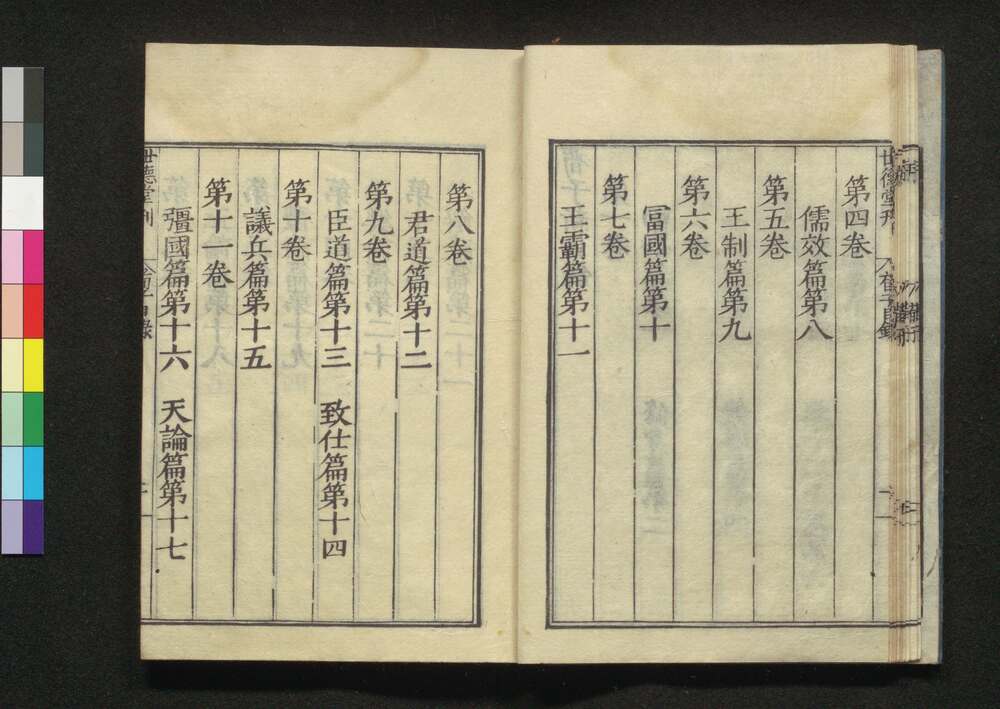 第四卷
儒效篇第八
第五卷
王制篇第九
第六卷
冨國篇第十
第七卷
王霸篇第十一
第八卷
君道篇第十二
第九卷
臣道篇第十三　致仕篇第十四
第十卷
議兵篇第十五
第十一卷
彊國篇第十六　天論篇第十七
世德堂刊